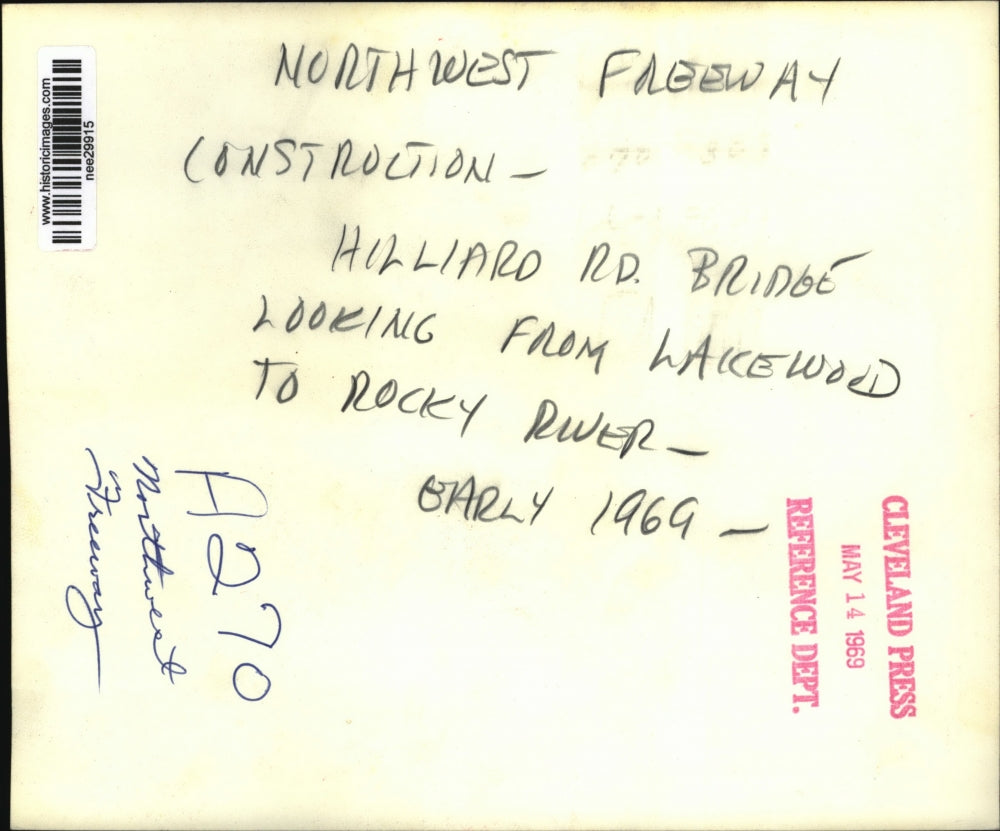 NORTHWEST FREEWAY
CONSTRUCTION –
HILLIARD RD. BRIDGE
LOOKING FROM LAKEWOOD
TO ROCKY RIVER –
EARLY 1969 –
www.historicimages.com
nee29915
A270
Northwest
Freeway
CLEVELAND PRESS
MAY 14 1969
REFERENCE DEPT.